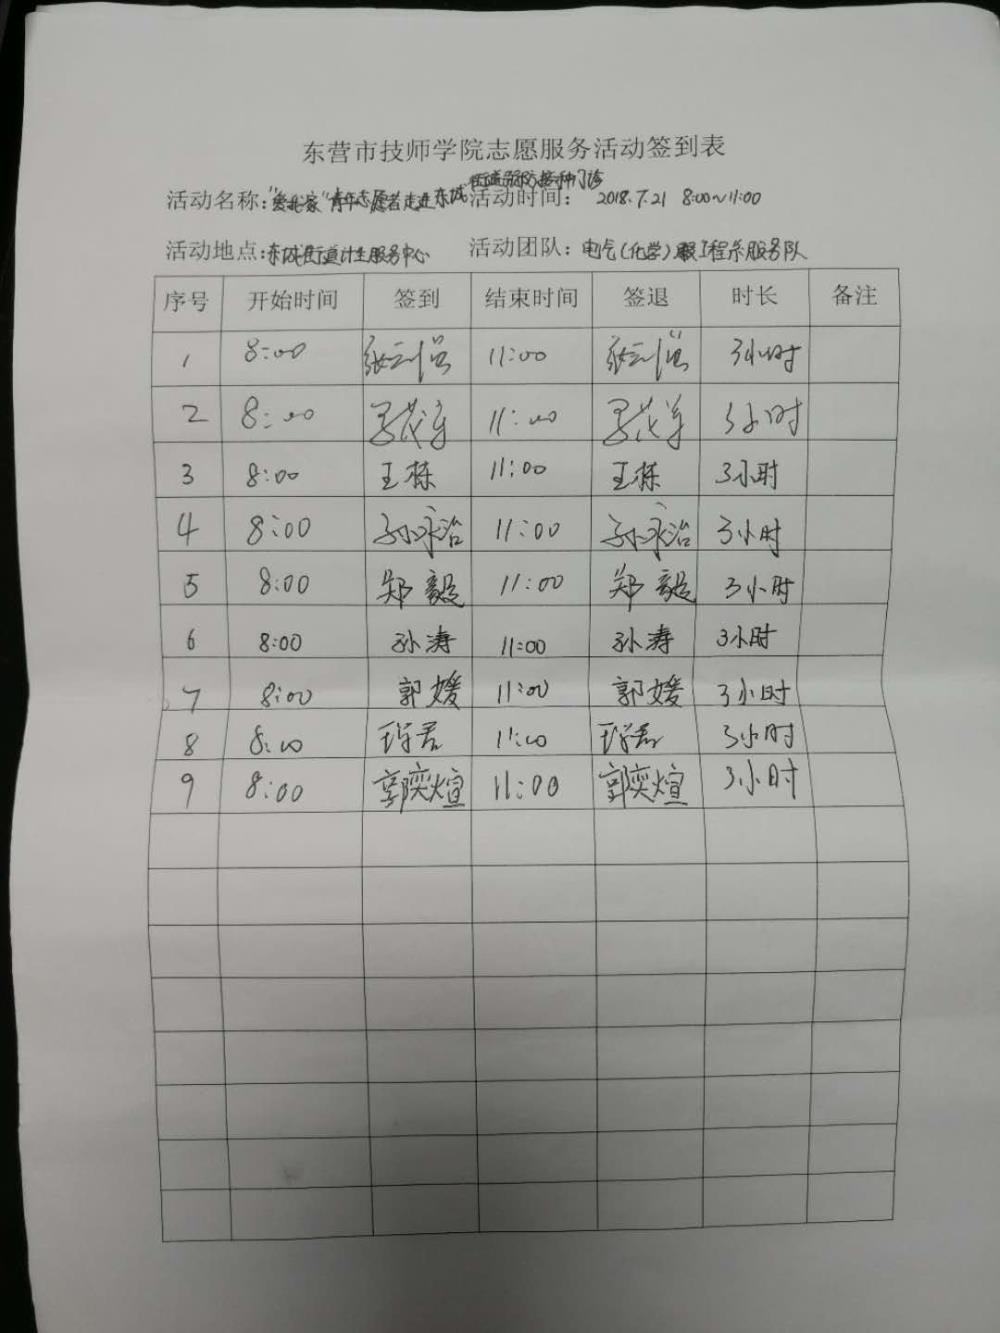 东营市技师学院志愿服务活动签到表
活动名称："爱我家"青年志愿者走进东城街道预防接种门诊 活动时间： 2018.7.21 8:00~11:00
活动地点：东城街道计生服务中心 活动团队：电气(化学)工程系服务队
序号 开始时间 签到 结束时间 签退 时长 备注
1 8:00 11:00 3小时
2 8:00 11:00 3小时
3 8:00 王栋 11:00 王栋 3小时
4 8:00 孙永治 11:00 孙永治 3小时
5 8:00 郑毅 11:00 郑毅 3小时
6 8:00 孙涛 11:00 孙涛 3小时
7 8:00 郭媛 11:00 郭媛 3小时
8 8:00 11:00 3小时
9 8:00 郭奕煊 11:00 郭奕煊 3小时